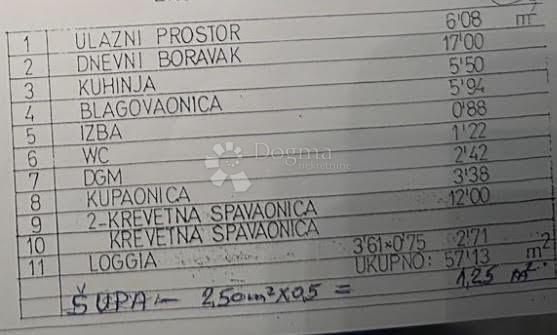 1 ULAZNI PROSTOR 6'08 m²
2 DNEVNI BORAVAK 17'00
3 KUHINJA 5'50
4 BLAGOVAONICA 5'94
5 IZBA 0'88
6 WC 1'22
7 DGM 2'42
8 KUPAONICA 3'38
9 2-KREVETNA SPAVAONICA 12'00
10 KREVETNA SPAVAONICA
11 LOGGIA 3'61×0'75 2'71
UKUPNO: 57'13 m²
ŠUPA – 2,50 m² x 0,5 = 1,25 m²
Dogma
nekretnine